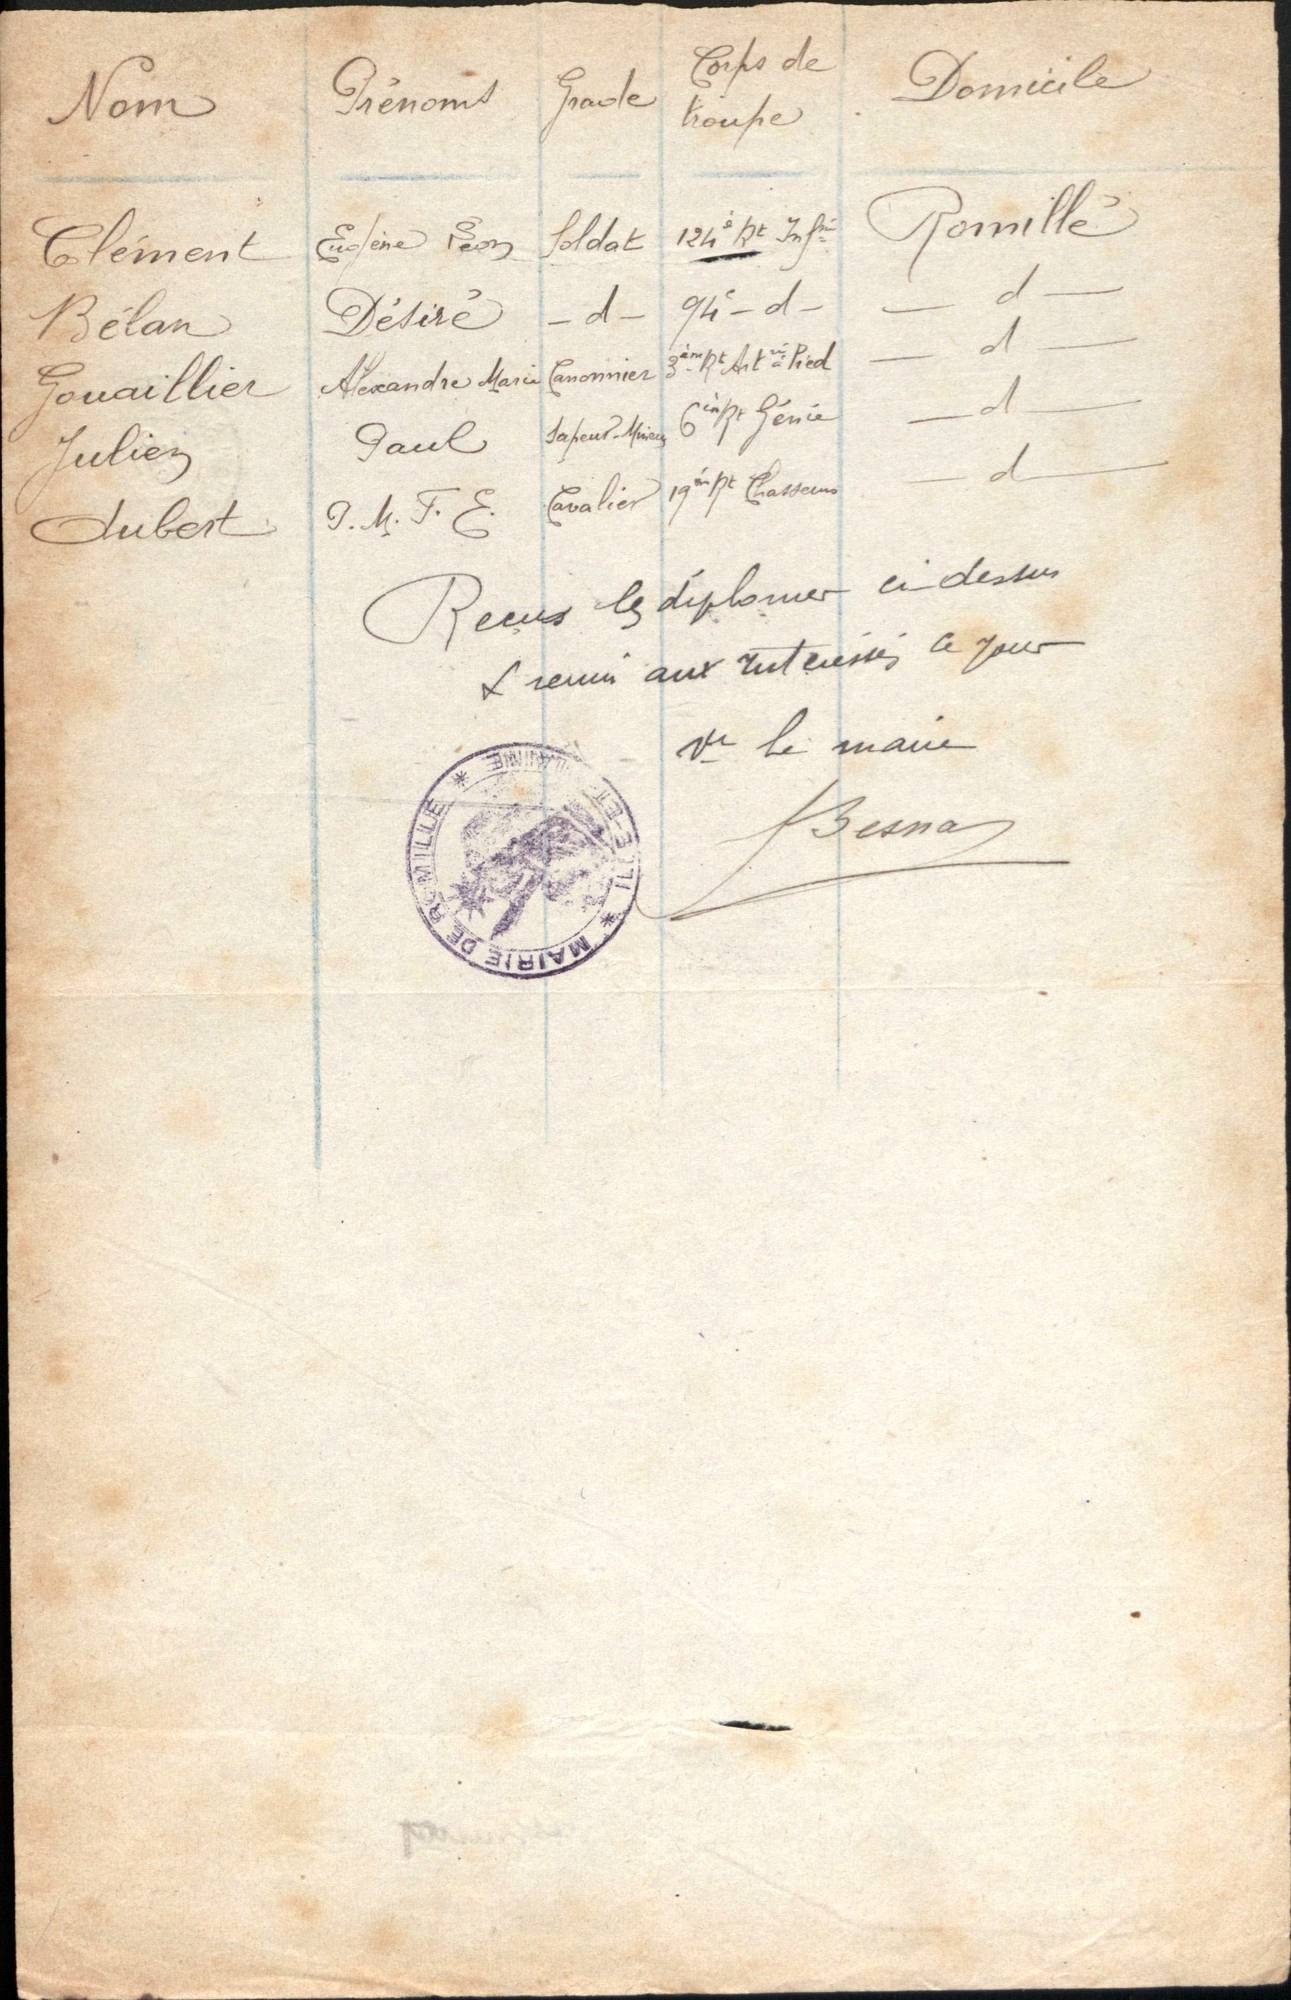 Nom Prénoms Grade Corps de troupe Domicile
Clément Eugène Léon Soldat 124è Rt Infrie Romillé
Bélan Désiré — d — 94e — d — — d —
Gouaillier Alexandre Marie Canonnier 3ème Rt Artrie à Pied — d —
Julien Paul Sapeur-Mineur 6ème Rt Génie — d —
Aubert P. M. F. E. Cavalier 19ème Rt Chasseurs — d —
Reçus les diplomes ci dessus
& remis aux interessés ce jour
le maire
Besna
MAIRIE DE ROMILLÉ * ILLE-ET-VILAINE *